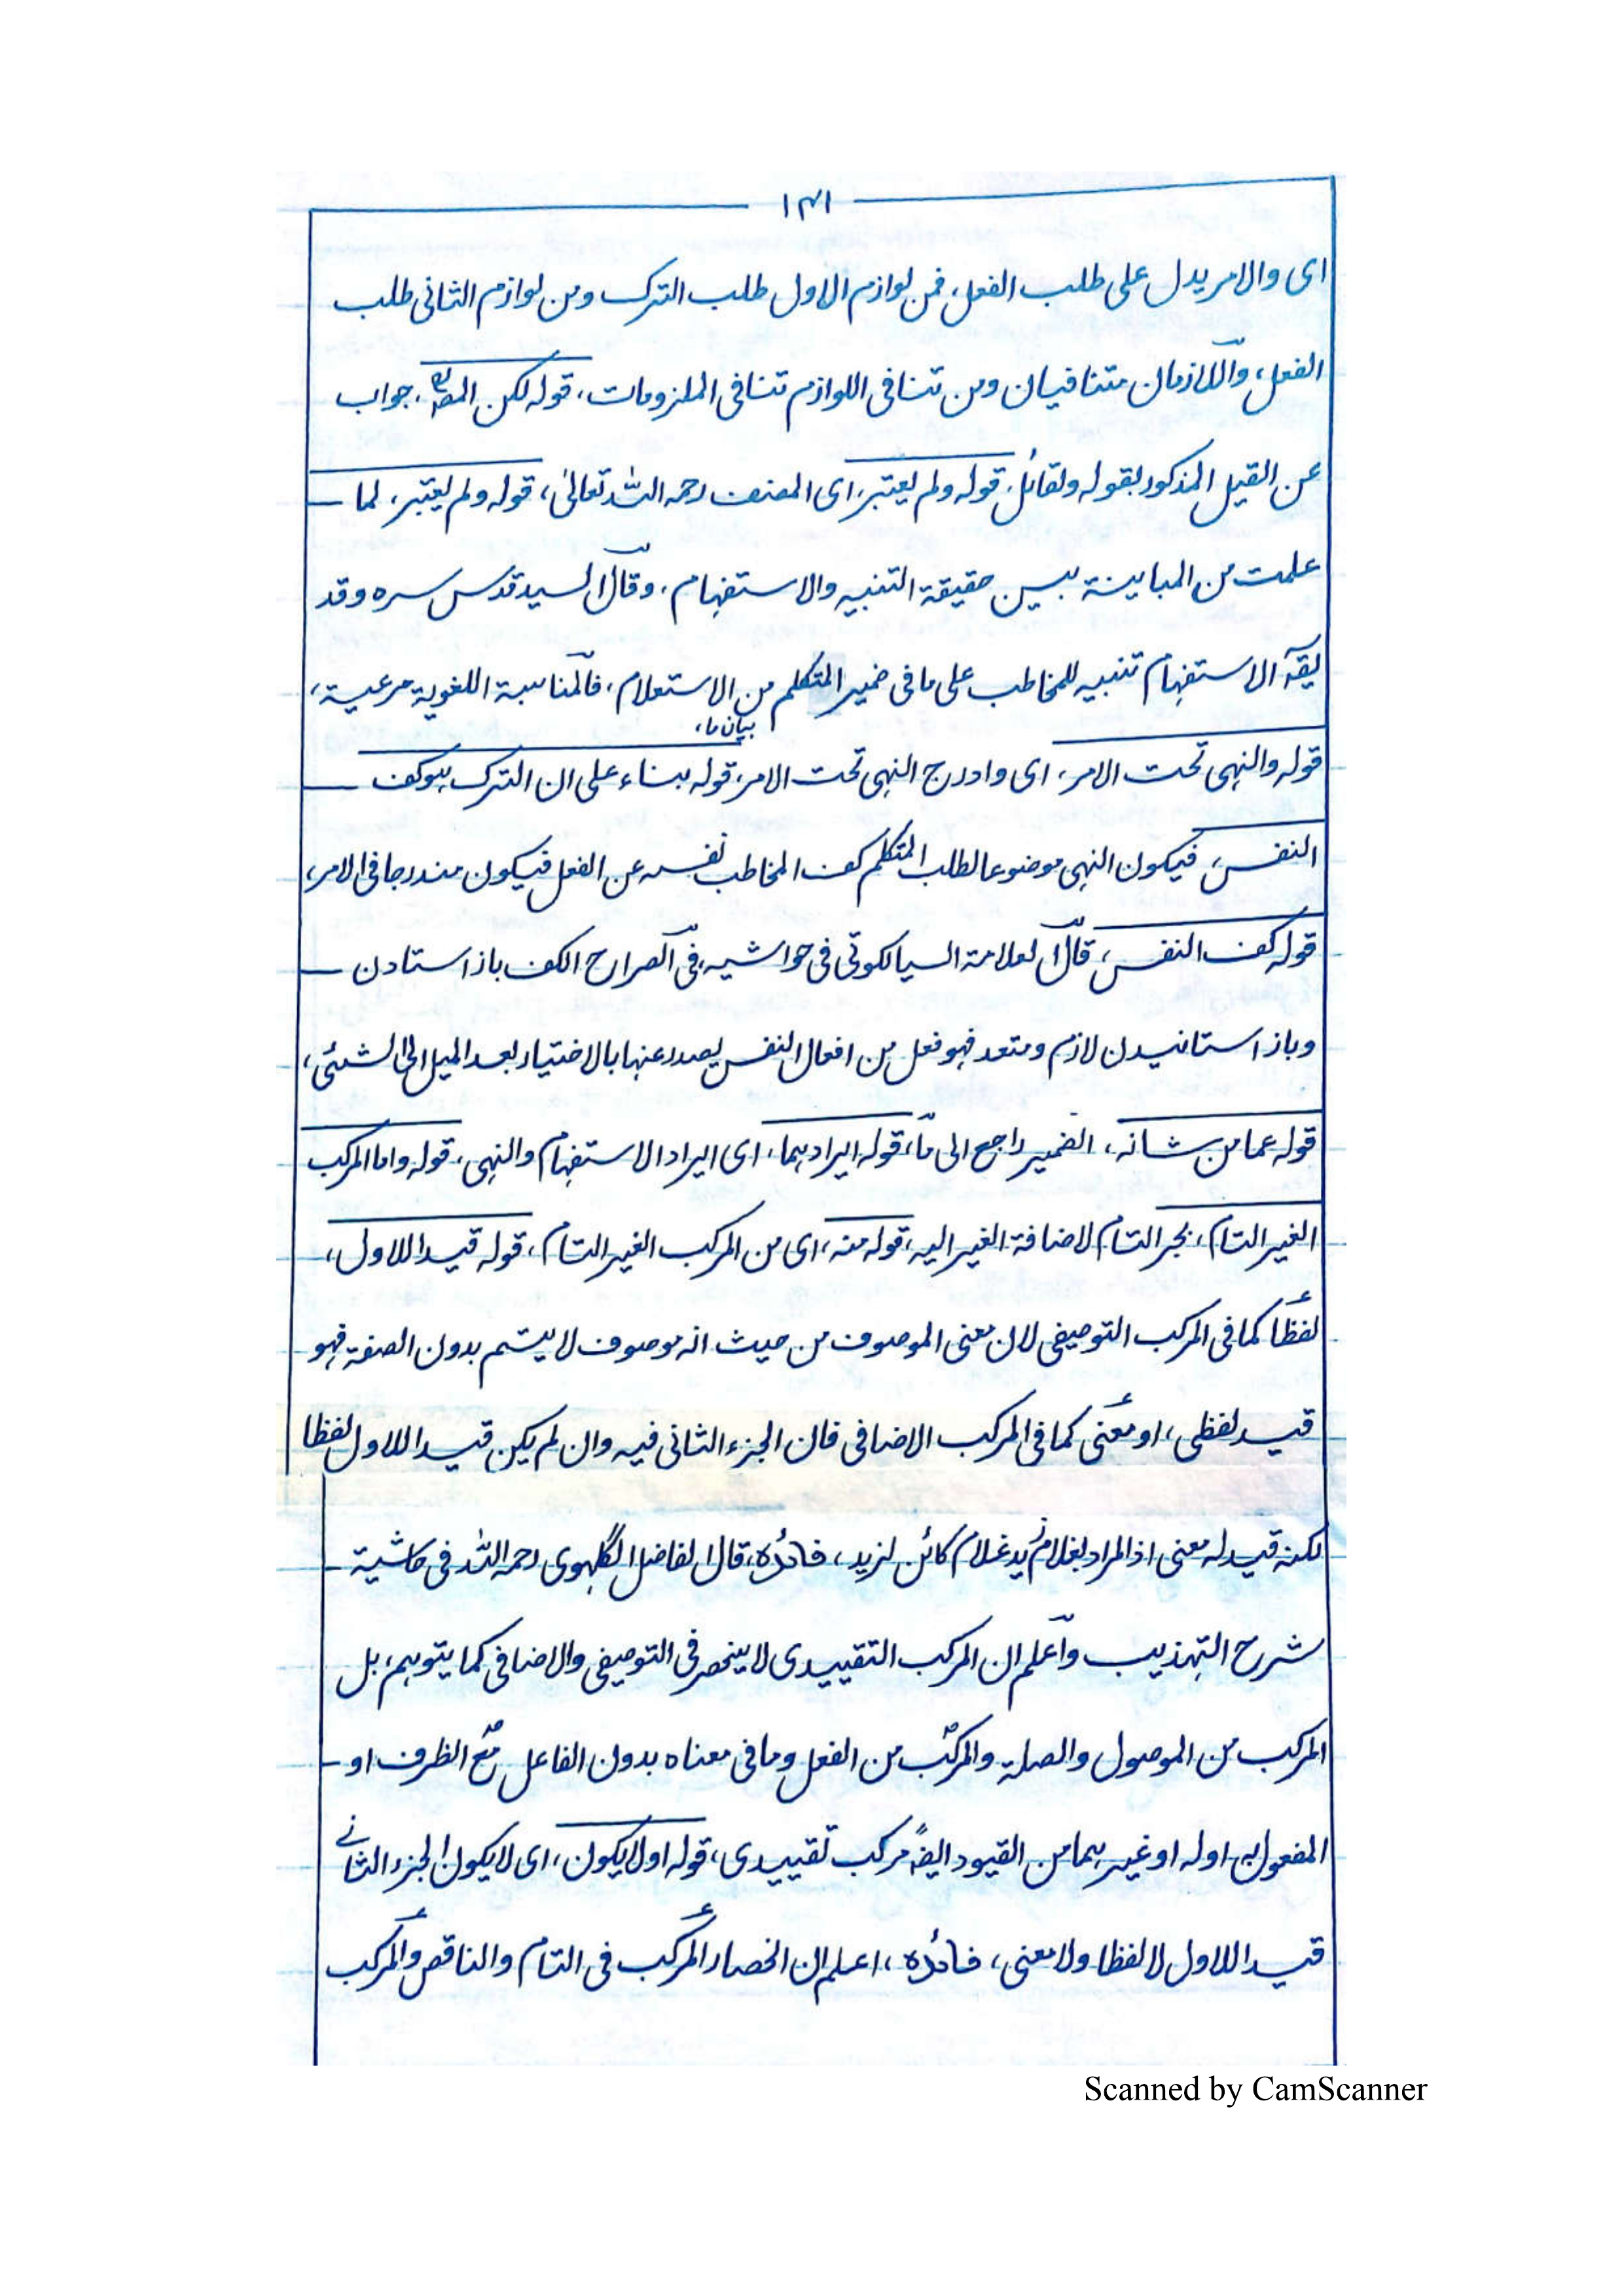 ١٣١
ای والامر یدل علی طلب الفعل، فمن لوازم الاول طلب الترک ومن لوازم الثانی طلب
الفعل، واللازمان متنافیان ومن تنافی اللوازم تنافی الملزومات، قوله لکن المصنف، جواب
عن القیل المذکور بقوله ولقائل، قوله ولم یعتبر، ای المصنف رحمه الله تعالیٰ، قوله ولم یعتبر، لما
علمت من المباینة بین حقیقة التنبیه والاستفهام، وقال السید قدس سره وقد
یقال الاستفهام تنبیه للمخاطب علی ما فی ضمیر المتکلم من الاستعلام، فالمناسبة اللغویة مرعیة،
بیان ما،
قوله والنهی تحت الامر، ای وادرج النهی تحت الامر، قوله بناء علی ان الترک هو کف
النفس، فیکون النهی موضوعا لطلب المتکلم کف المخاطب نفسه عن الفعل فیکون مندرجا فی الامر،
قوله کف النفس، قال العلامة السیالکوتی فی حواشیه، فی الصراح الکف باز استادن
وباز استانیدن لازم ومتعد فهو فعل من افعال النفس یصدر عنها بالاختیار بعد المیل الی الشئی،
قوله عما من شانه، الضمیر راجع الی ما، قوله ایرادهما، ای ایراد الاستفهام والنهی، قوله واما المرکب
الغیر التام، بجر التام لاضافة الغیر الیه، قوله منه، ای من المرکب الغیر التام، قوله قیدا للاول،
لفظا کما فی المرکب التوصیفی لان معنی الموصوف من حیث انه موصوف لا یتم بدون الصفة فهو
قید لفظی، او معنی کما فی المرکب الاضافی فان الجزء الثانی فیه وان لم یکن قیدا للاول لفظا
لکنه قید له معنی اذ المراد بغلام زید غلام کائن لزید، فائده، قال الفاضل الگلهوی رحمه الله فی حاشیة
شرح التهذیب واعلم ان المرکب التقییدی لا ینحصر فی التوصیفی والاضافی کما یتوهم، بل
المرکب من الموصول والصلة والمرکب من الفعل وما فی معناه بدون الفاعل مع الظرف او
المفعول به او له او غیرهما من القیود ایضا مرکب تقییدی، قوله او لا یکون، ای لا یکون الجزء الثانی
قیدا للاول لا لفظا ولا معنی، فائده، اعلم ان انحصار المرکب فی التام والناقص والمرکب
Scanned by CamScanner